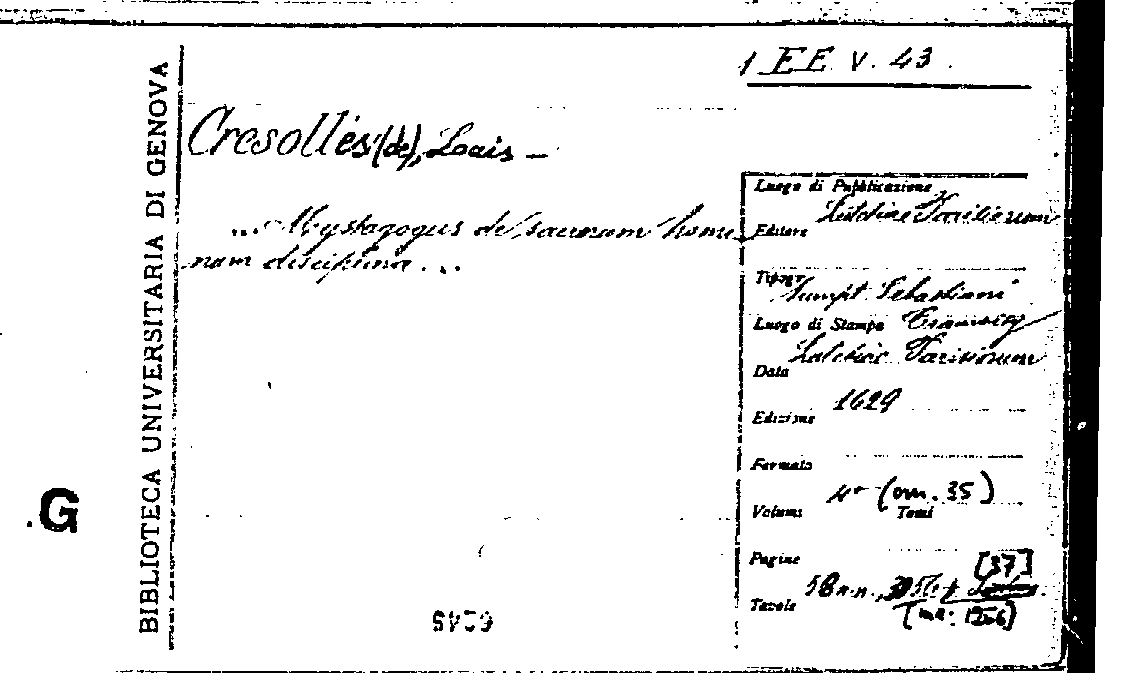 1 EE V. 43.
BIBLIOTECA UNIVERSITARIA DI GENOVA
Cresolles (de), Louis –
... Mystagogus de sacrorum homi
num disciplina ...
Luogo di Pubblicazione
Lutetiae Parisiorum
Editore
Tipogr.
Sumpt. Sebastiani
Luogo di Stampa Cramoisy
Lutetiae Parisiorum
Data
1629
Edizione
Formato
4° (om. 35)
Volumi Tomi
Pagine [37]
58 n.n.,
Tavole (ma: 1256)
G